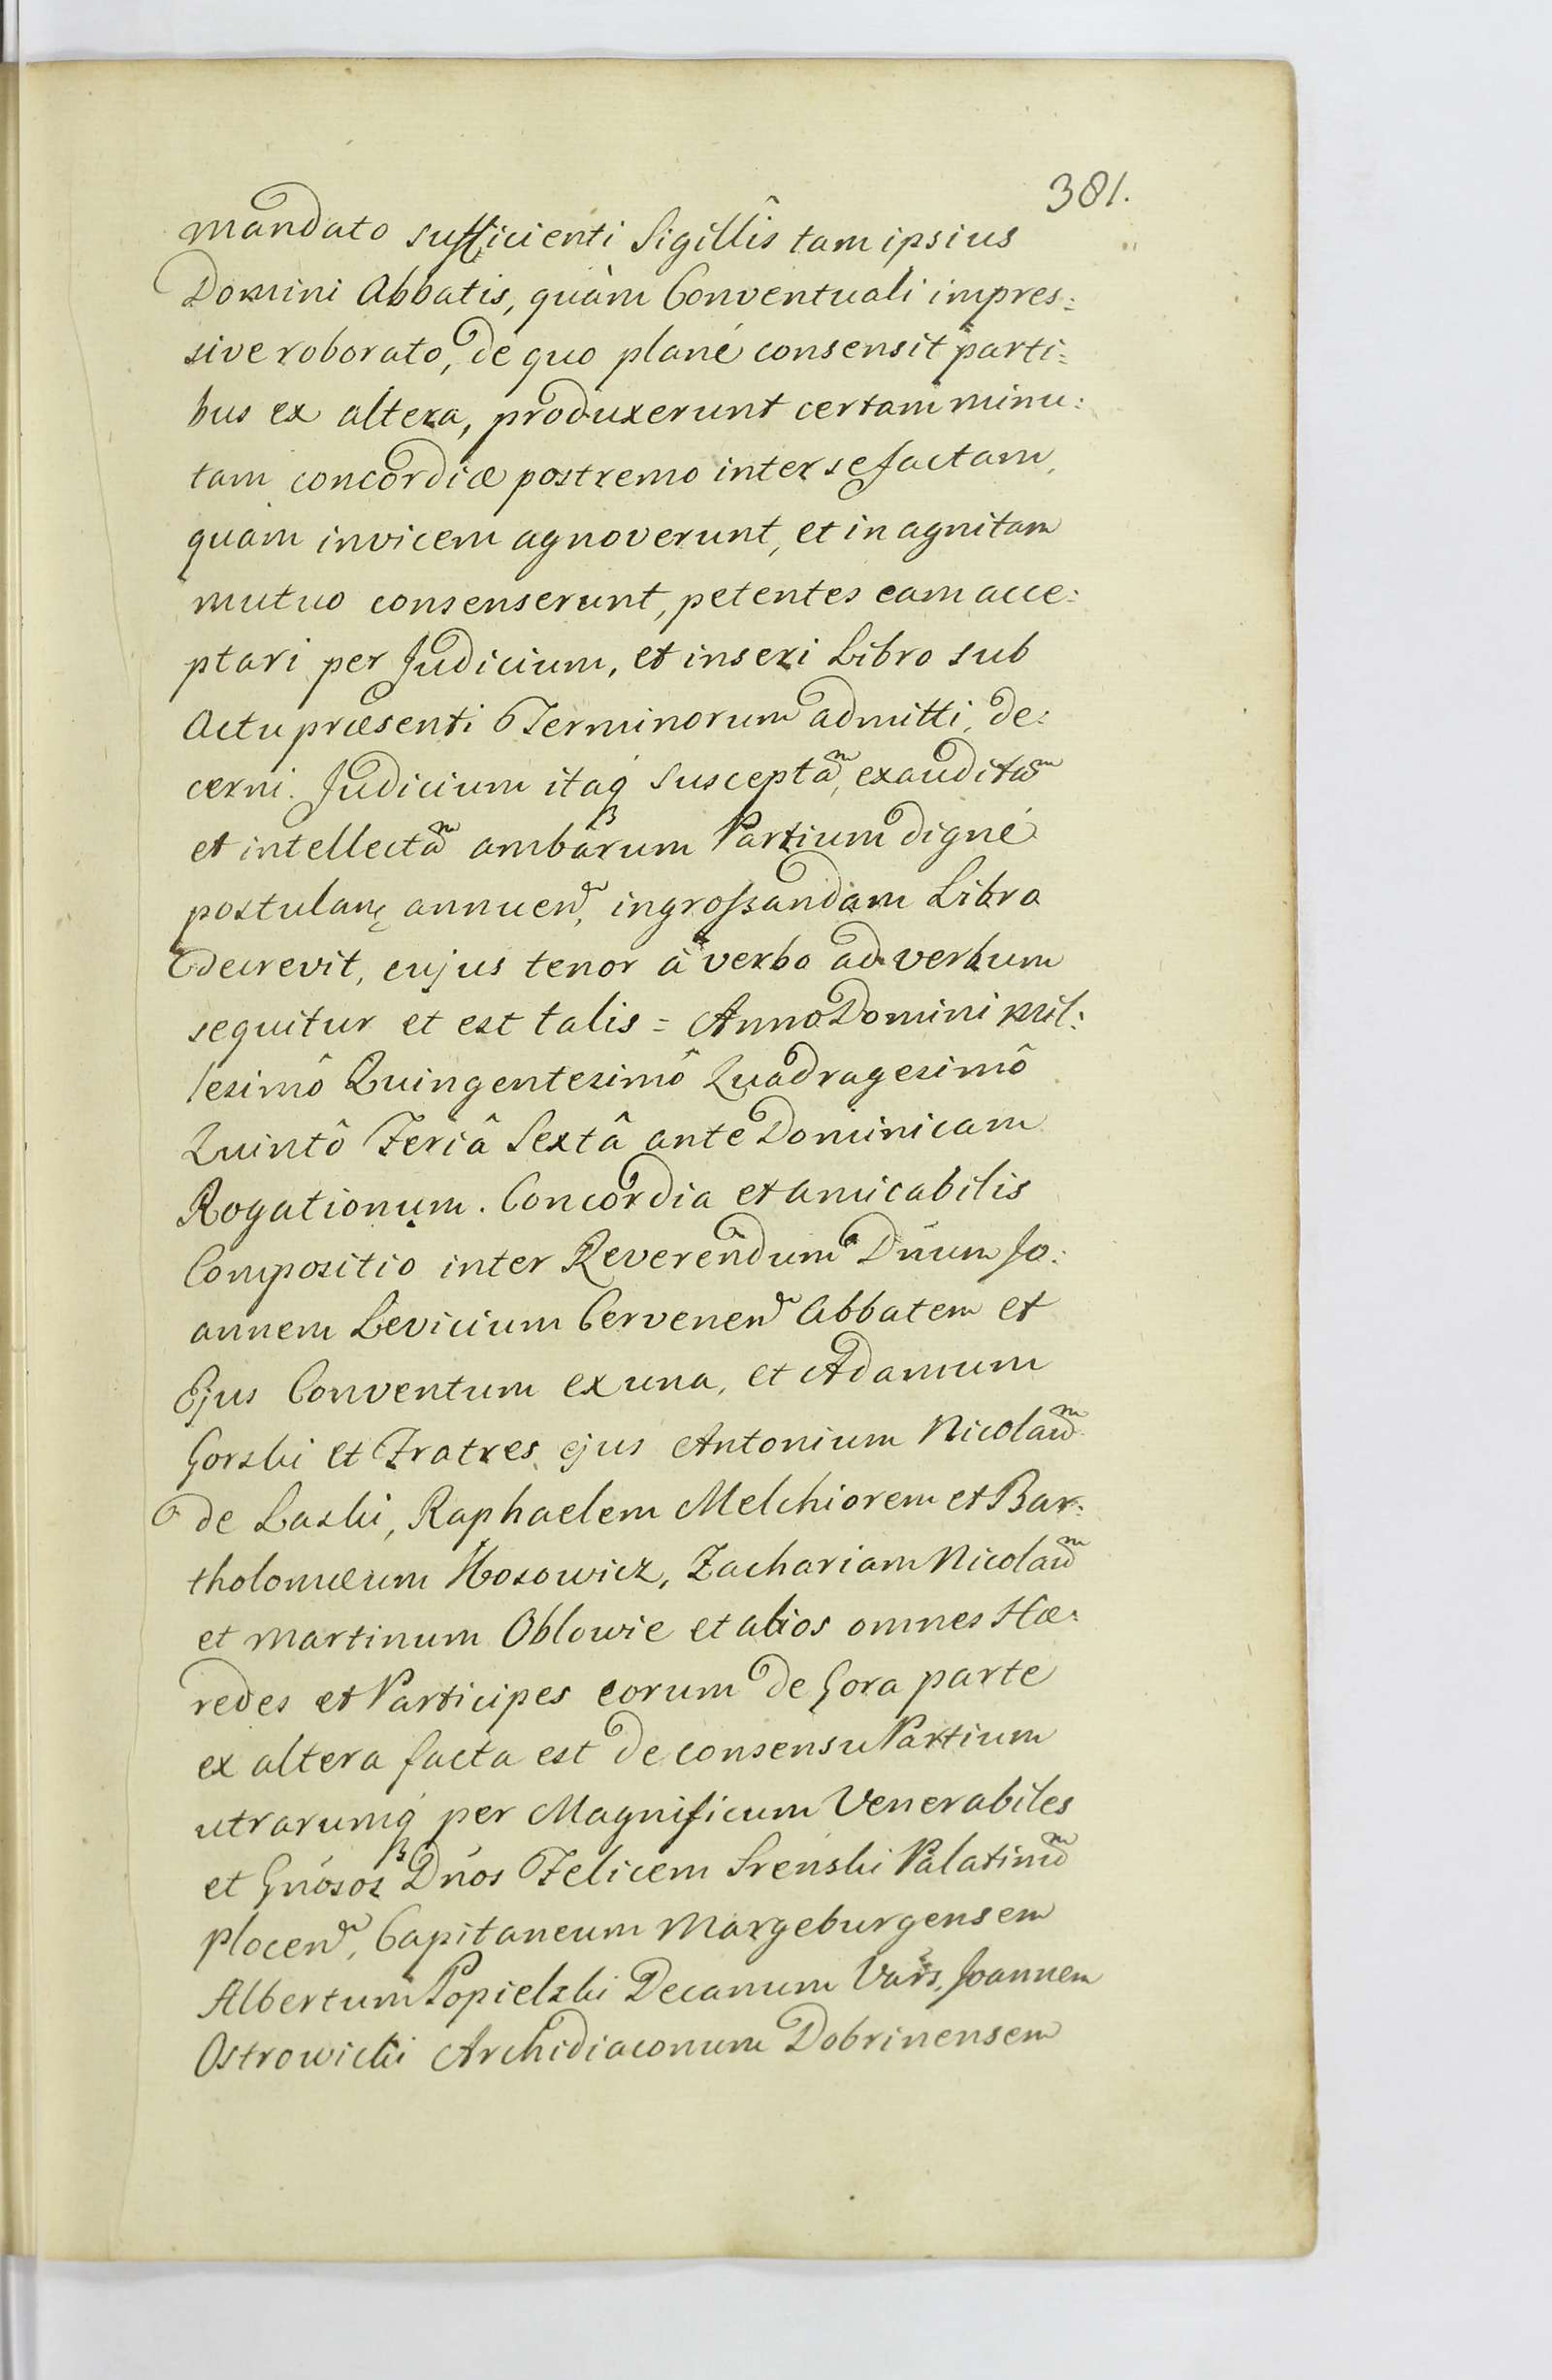 381.
mandato sufficienti Sigillîs tam ipsius
Domini Abbatis, quàm Conventuali impres=
sive roborato, de quo planè consensit parti=
bus ex altera, produxerunt certam minu=
tam concordiæ postremo inter se factam,
quam invicem agnoverunt, et in agnitam
mutuo consenserunt, petentes eam acce=
ptari per Judicium, et inseri Libro sub
Actu præsenti Terminorum admitti, de=
cerni. Judicium itaq susceptam, exauditam
et intellectam ambarum Partium dignè
postulanę annuen, ingroſsandam Libro
decrevit, cujus tenor à verbo ad verbum
sequitur et est talis = Anno Domini Mil=
lesimô Quingentesimô Quadragesimô
Quintô Feriâ Sextâ ante Dominicam
Rogationum. Concordia et amicabilis
Compositio inter Reverendum Dnum Jo=
annem Levicium Cervenen Abbatem et
Ejus Conventum ex una, et Adamum
Gorski et Fratres ejus Antonium Nicolaum
de Laski, Raphaelem Melchiorem et Bar=
tholomæum Hosowicz, Zachariam Nicolaum
et Martinum Oblowie et alios omnes Hæ=
redes et Participes eorum de Gora parte
ex altera facta est de consensu Partium
utrarumq per Magnificum Venerabiles
et Gnosos Dnos Felicem Srenski Palatinum
Plocen, Capitaneum Margeburgensem
Albertum Popielski Decanum Vars. Joannem
Ostrowicki Archidiaconum Dobrinensem